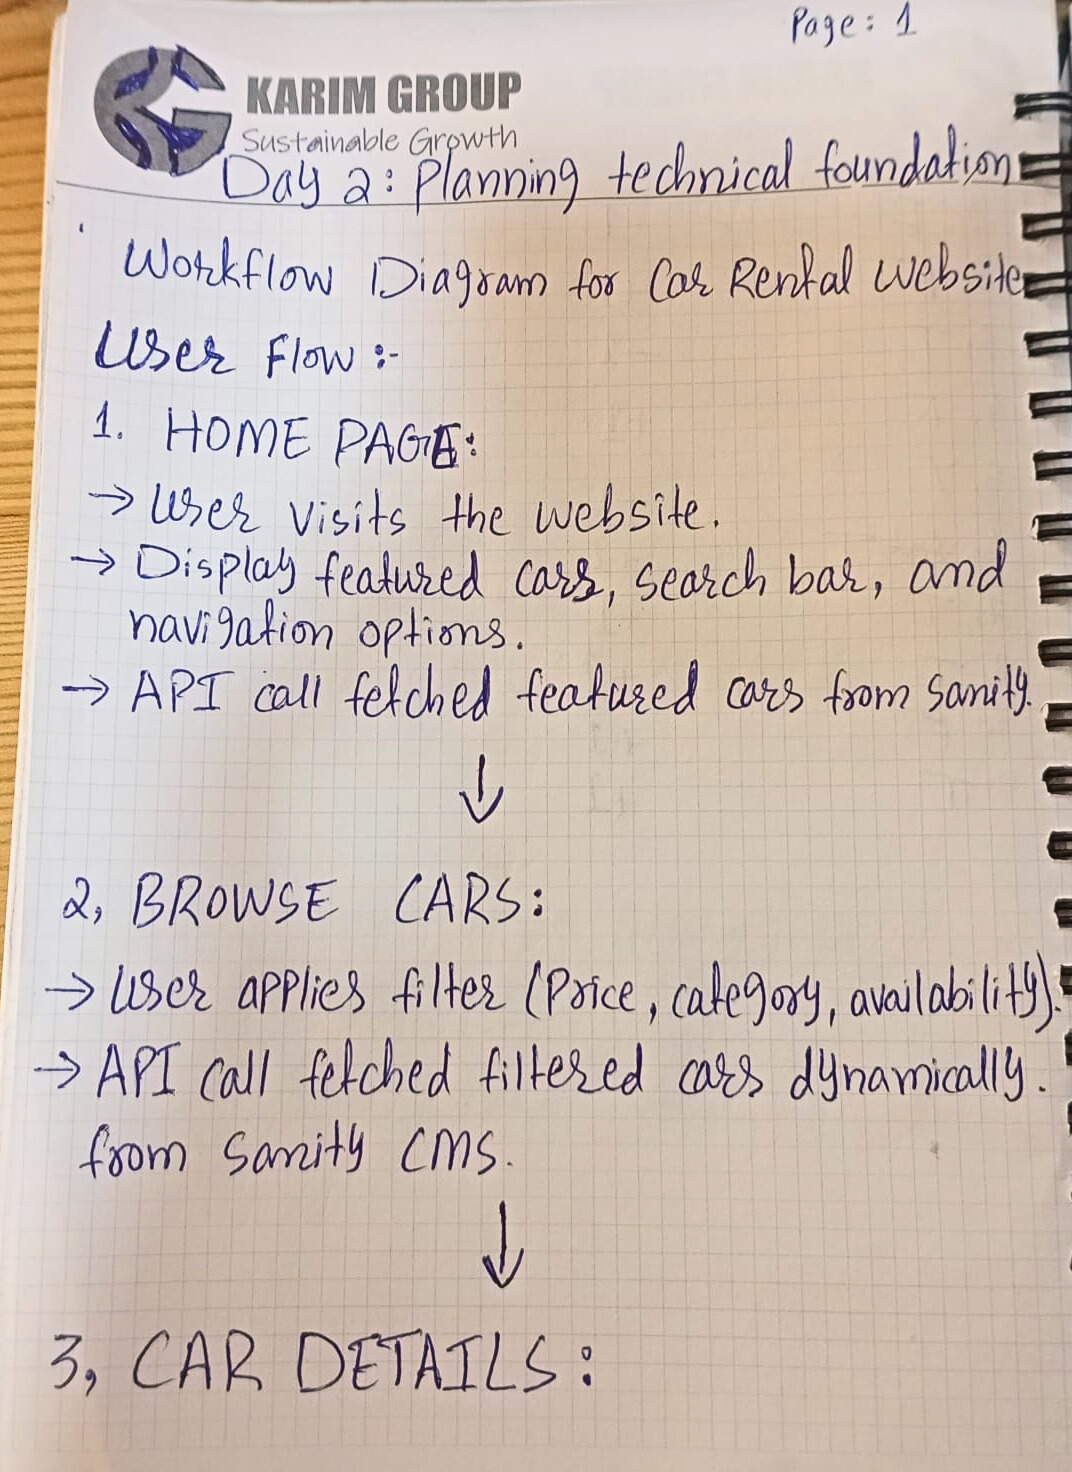 Page: 1
KARIM GROUP
Sustainable Growth
Day 2: Planning technical foundation
Workflow Diagram for Car Rental Website
User Flow :-
1. HOME PAGE:
→ User visits the website.
→ Display featured cars, search bar, and
navigation options.
→ API call fetched featured cars from sanity.
↓
2, BROWSE CARS:
→ User applies filter (Price, category, availability).
→ API call fetched filtered cars dynamically.
from Sanity CMS.
↓
3, CAR DETAILS: